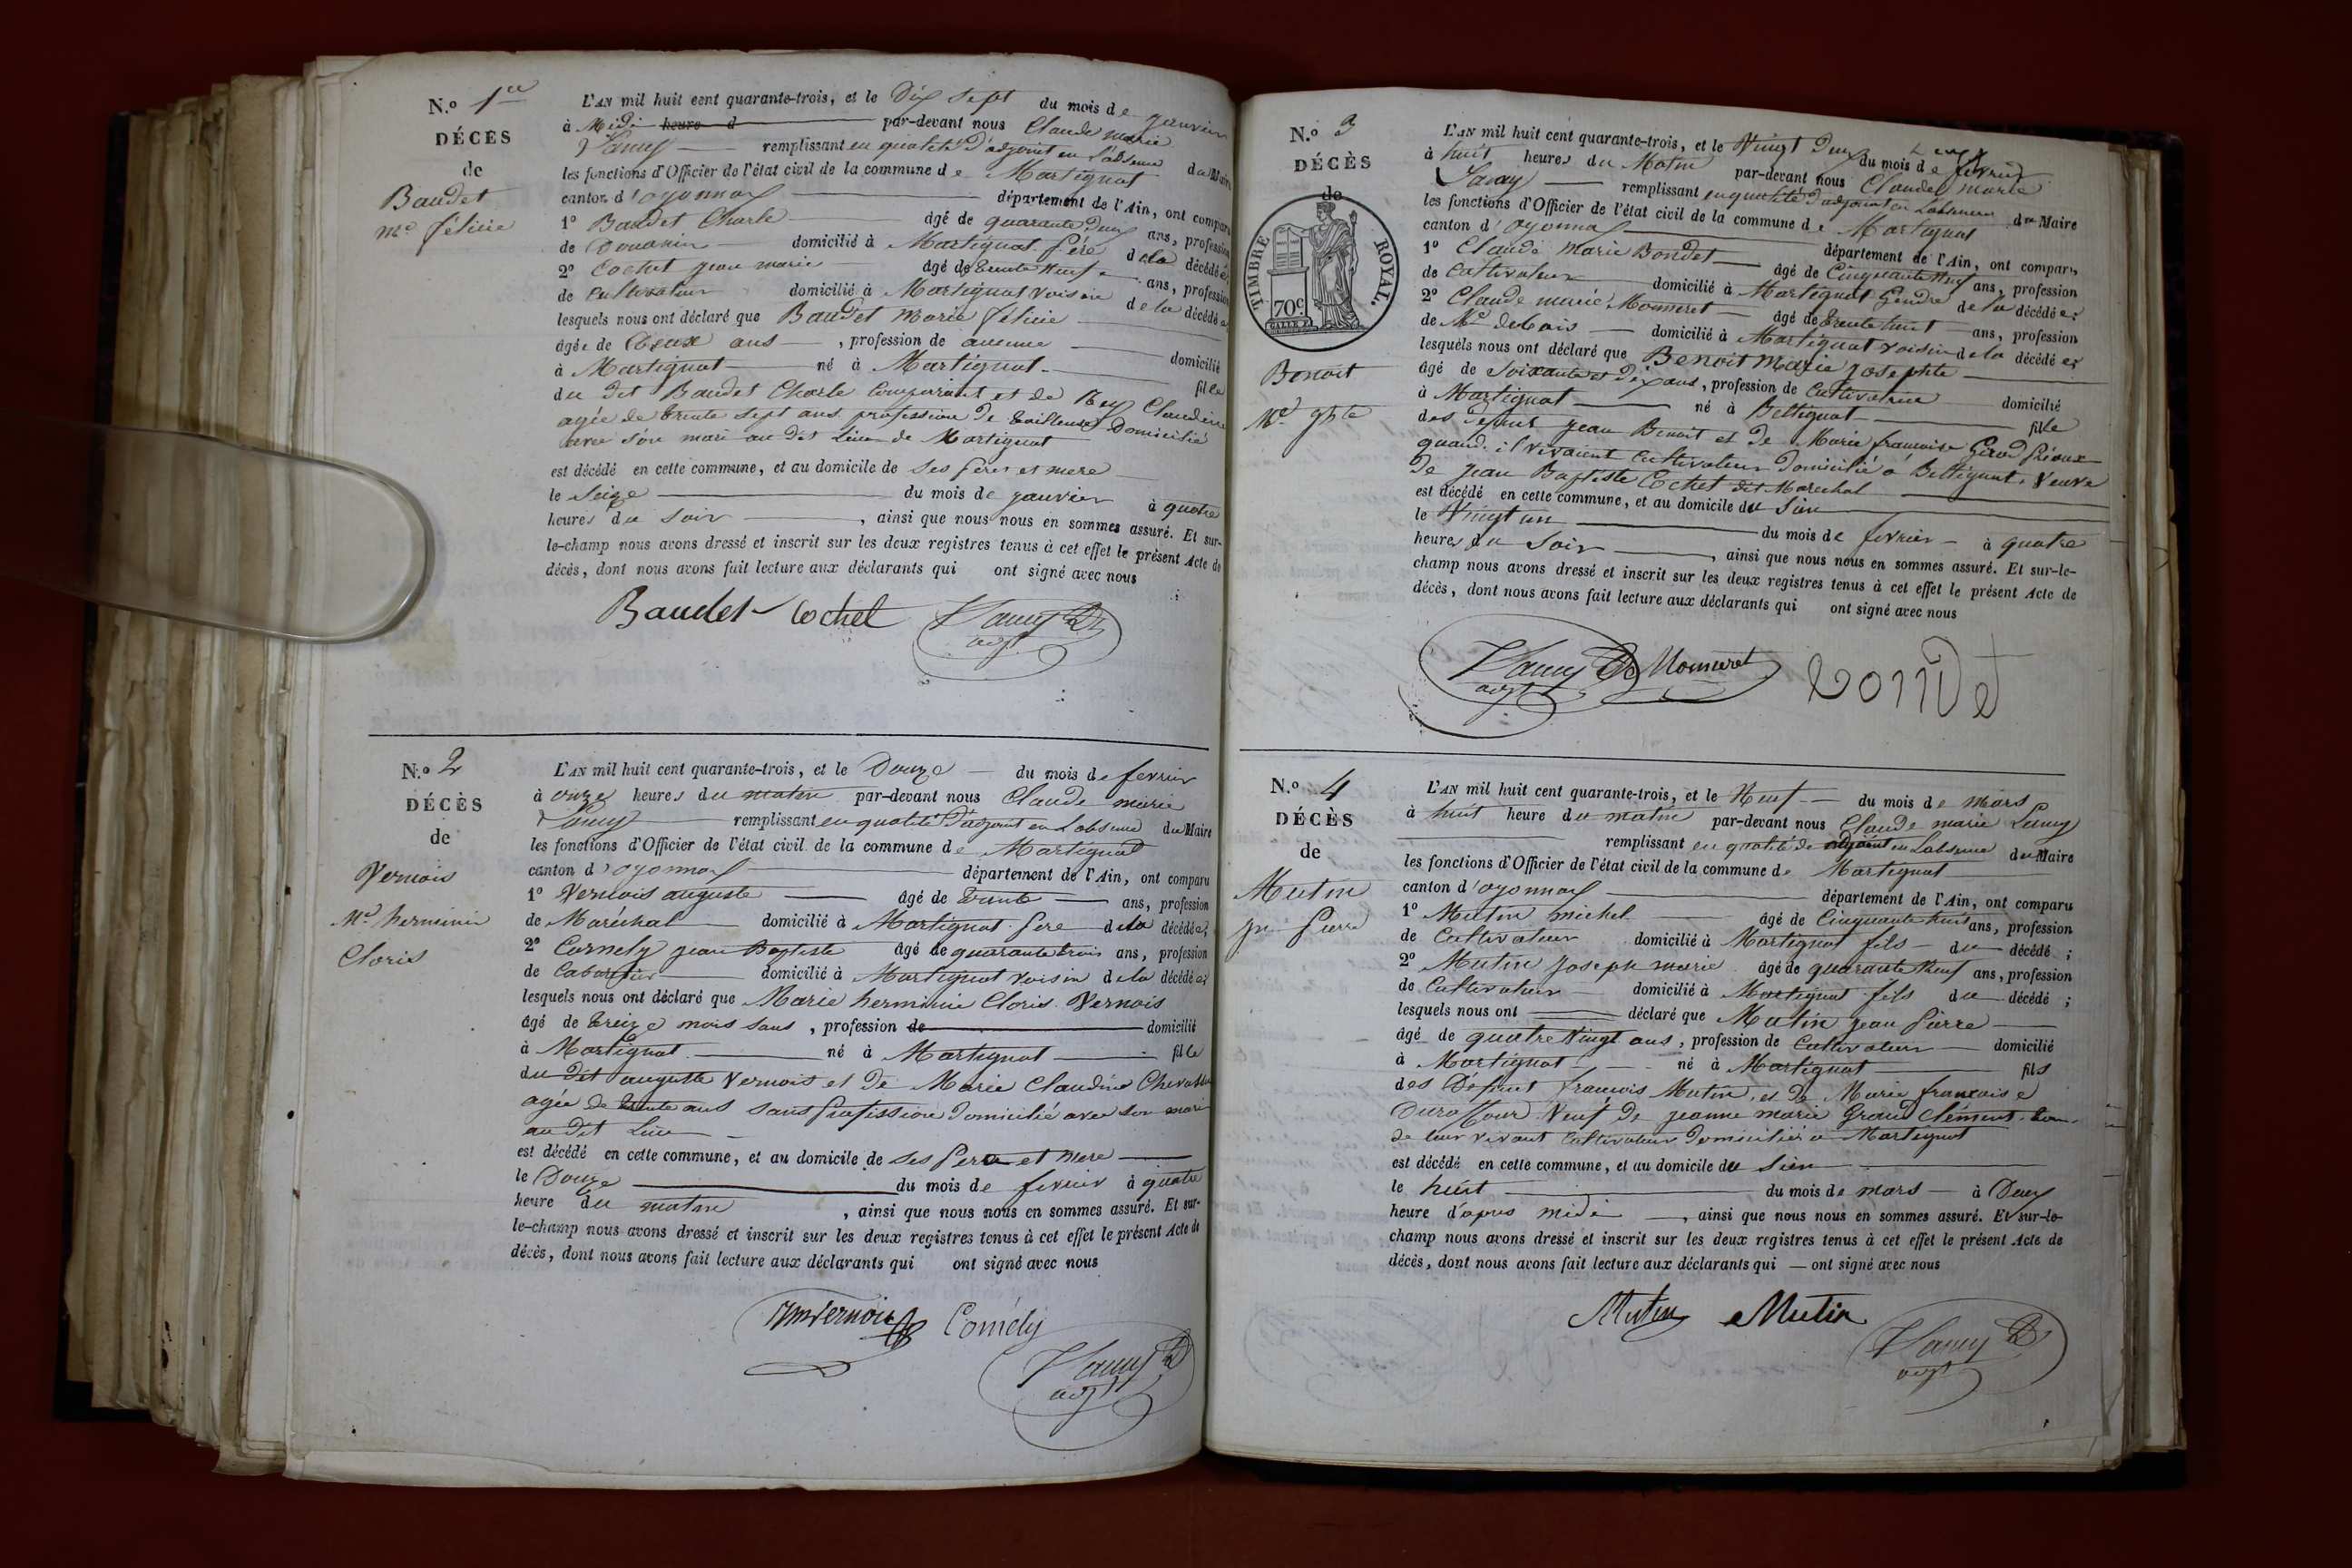 N.o 1er
DÉCÈS
de
Baudet
Me félicie
L'AN mil huit cent quarante-trois, et le Dix sept du mois de janvier
à Midi heure d par-devant nous Claude marie
remplissant en qualité d'adjoint en l'absence du Maire
les fonctions d'Officier de l'état civil de la commune de Martignat
canton d'oyonnax département de l'Ain, ont comparu
1o Baudet Charle âgé de quarante deux ans, profession
de Douanier domicilié à Martignat Père de la décédée;
2o Cochet jean marie âgé de trente neuf ans, profession
de Cultivateur domicilié à Martignat voisin de la décédée
lesquels nous ont déclaré que Baudet Marie félicie
âgée de Deux ans, profession de aucune domicilié
à Martignat né à Martignat fille
du dit Baudet Charle Comparant et de Rey Claudine
agée de trente sept ans profession de tailleuse Domicilié
avec son mari au dit Lieu de Martignat
est décédé en cette commune, et au domicile de ses pere et mere
le Seize du mois de janvier à quatre
heures du soir, ainsi que nous nous en sommes assuré. Et sur-
le-champ nous avons dressé et inscrit sur les deux registres tenus à cet effet le présent Acte de
décès, dont nous avons fait lecture aux déclarants qui ont signé avec nous
Baudet Cochet
adjt
N.o 2
DÉCÈS
de
Vernois
Me herminie
Cloris
L'AN mil huit cent quarante-trois, et le Douze du mois de fevrier
à onze heures du matin par-devant nous Claude marie
remplissant en qualité d'adjoint en Labsence du Maire
les fonctions d'Officier de l'état civil de la commune de Martignat
canton d'oyonnax département de l'Ain, ont comparu
1o Vernois auguste âgé de trente ans, profession
de Maréchal domicilié à Martignat Pere de la décédée;
2o Cornely jean Baptiste âgé de quarante trois ans, profession
de Cabaretier domicilié à Martignat voisin de la décédée;
lesquels nous ont déclaré que Marie herminie Cloris Vernois
âgé de treize mois sans, profession de domicilié
à Martignat né à Martignat fille
du dit auguste Vernois et de Marie Claudine
agée de trente ans sans profession domicilié avec son mari
au dit Lieu
est décédé en cette commune, et au domicile de ses Pere et Mere
le Douze du mois de fevrier à quatre
heure du matin, ainsi que nous nous en sommes assuré. Et sur-
le-champ nous avons dressé et inscrit sur les deux registres tenus à cet effet le présent Acte de
décès, dont nous avons fait lecture aux déclarants qui ont signé avec nous
Vernois Cornély
adjt
N.o 3
DÉCÈS
de
TIMBRE ROYAL.
70c
Benoit
Me jphte
L'AN mil huit cent quarante-trois, et le Vingt Deux du mois de fevrier
à huit heures du Matin par-devant nous Claude marie
remplissant en qualité d'adjoint en Labsence du Maire
les fonctions d'Officier de l'état civil de la commune de Martignat
canton d'oyonnax département de l'Ain, ont comparu
1o Claude Marie Bondet âgé de Cinquante neuf ans, profession
de Cultivateur domicilié à Martignat Gendre de la décédée;
2o Claude marie Monneret âgé de trente huit ans, profession
de Md de bois domicilié à Martignat voisin de la décédée;
lesquels nous ont déclaré que Benoit Marie josephte
âgé de Soixante et Dix ans, profession de Cultivatrice domicilié
à Martignat né à Bellignat fille
des defunt jean Benoit et de Marie francoise Girod
quand il vivaient Cultivateur Domicilié à Bellignat, Veuve
de jean Baptiste Cochet dit Marechal
est décédé en cette commune, et au domicile du Sien
le Vingt un du mois de fevrier à quatre
heures du soir, ainsi que nous nous en sommes assuré. Et sur-le-
champ nous avons dressé et inscrit sur les deux registres tenus à cet effet le présent Acte de
décès, dont nous avons fait lecture aux déclarants qui ont signé avec nous
adjt Monneret bondet
N.o 4
DÉCÈS
de
Mutin
jn Pierre
L'AN mil huit cent quarante-trois, et le Neuf du mois de Mars
à huit heure du matin par-devant nous Claude marie
remplissant en qualité de adjoint en Labsence du Maire
les fonctions d'Officier de l'état civil de la commune de Martignat
canton d'oyonnax département de l'Ain, ont comparu
1o Mutin michel âgé de Cinquante huit ans, profession
de Cultivateur domicilié à Martignat fils du décédé;
2o Mutin joseph marie âgé de quarante Neuf ans, profession
de Cultivateur domicilié à Martignat fils du décédé;
lesquels nous ont déclaré que Mutin jean Pierre
âgé de quatre Vingt ans, profession de Cultivateur domicilié
à Martignat né à Martignat fils
des Défunt francois Mutin, et de Marie francoise
Duraffour Veuf de jeanne marie Grand Clément
de leur vivant Cultivateur Domiciliés à Martignat
est décédé en cette commune, et au domicile du Sien
le huit du mois de mars à Deux
heure d'apres midi, ainsi que nous nous en sommes assuré. Et sur-le-
champ nous avons dressé et inscrit sur les deux registres tenus à cet effet le présent Acte de
décès, dont nous avons fait lecture aux déclarants qui — ont signé avec nous
Mutin Mutin
adjt